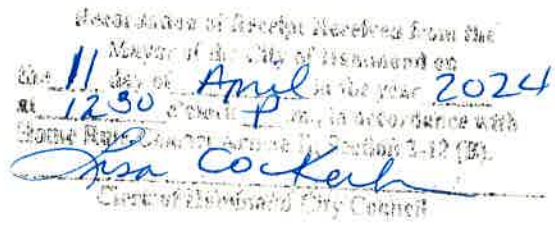 Recordation of Receipt Received from the
Mayor of the City of Hammond on
the 11 day of April in the year 2024
at 12 30 o'clock P m., in accordance with
Home Rule Charter Article II, Section 2-12 (B).
Lisa Cockerh
Clerk of Hammond City Council